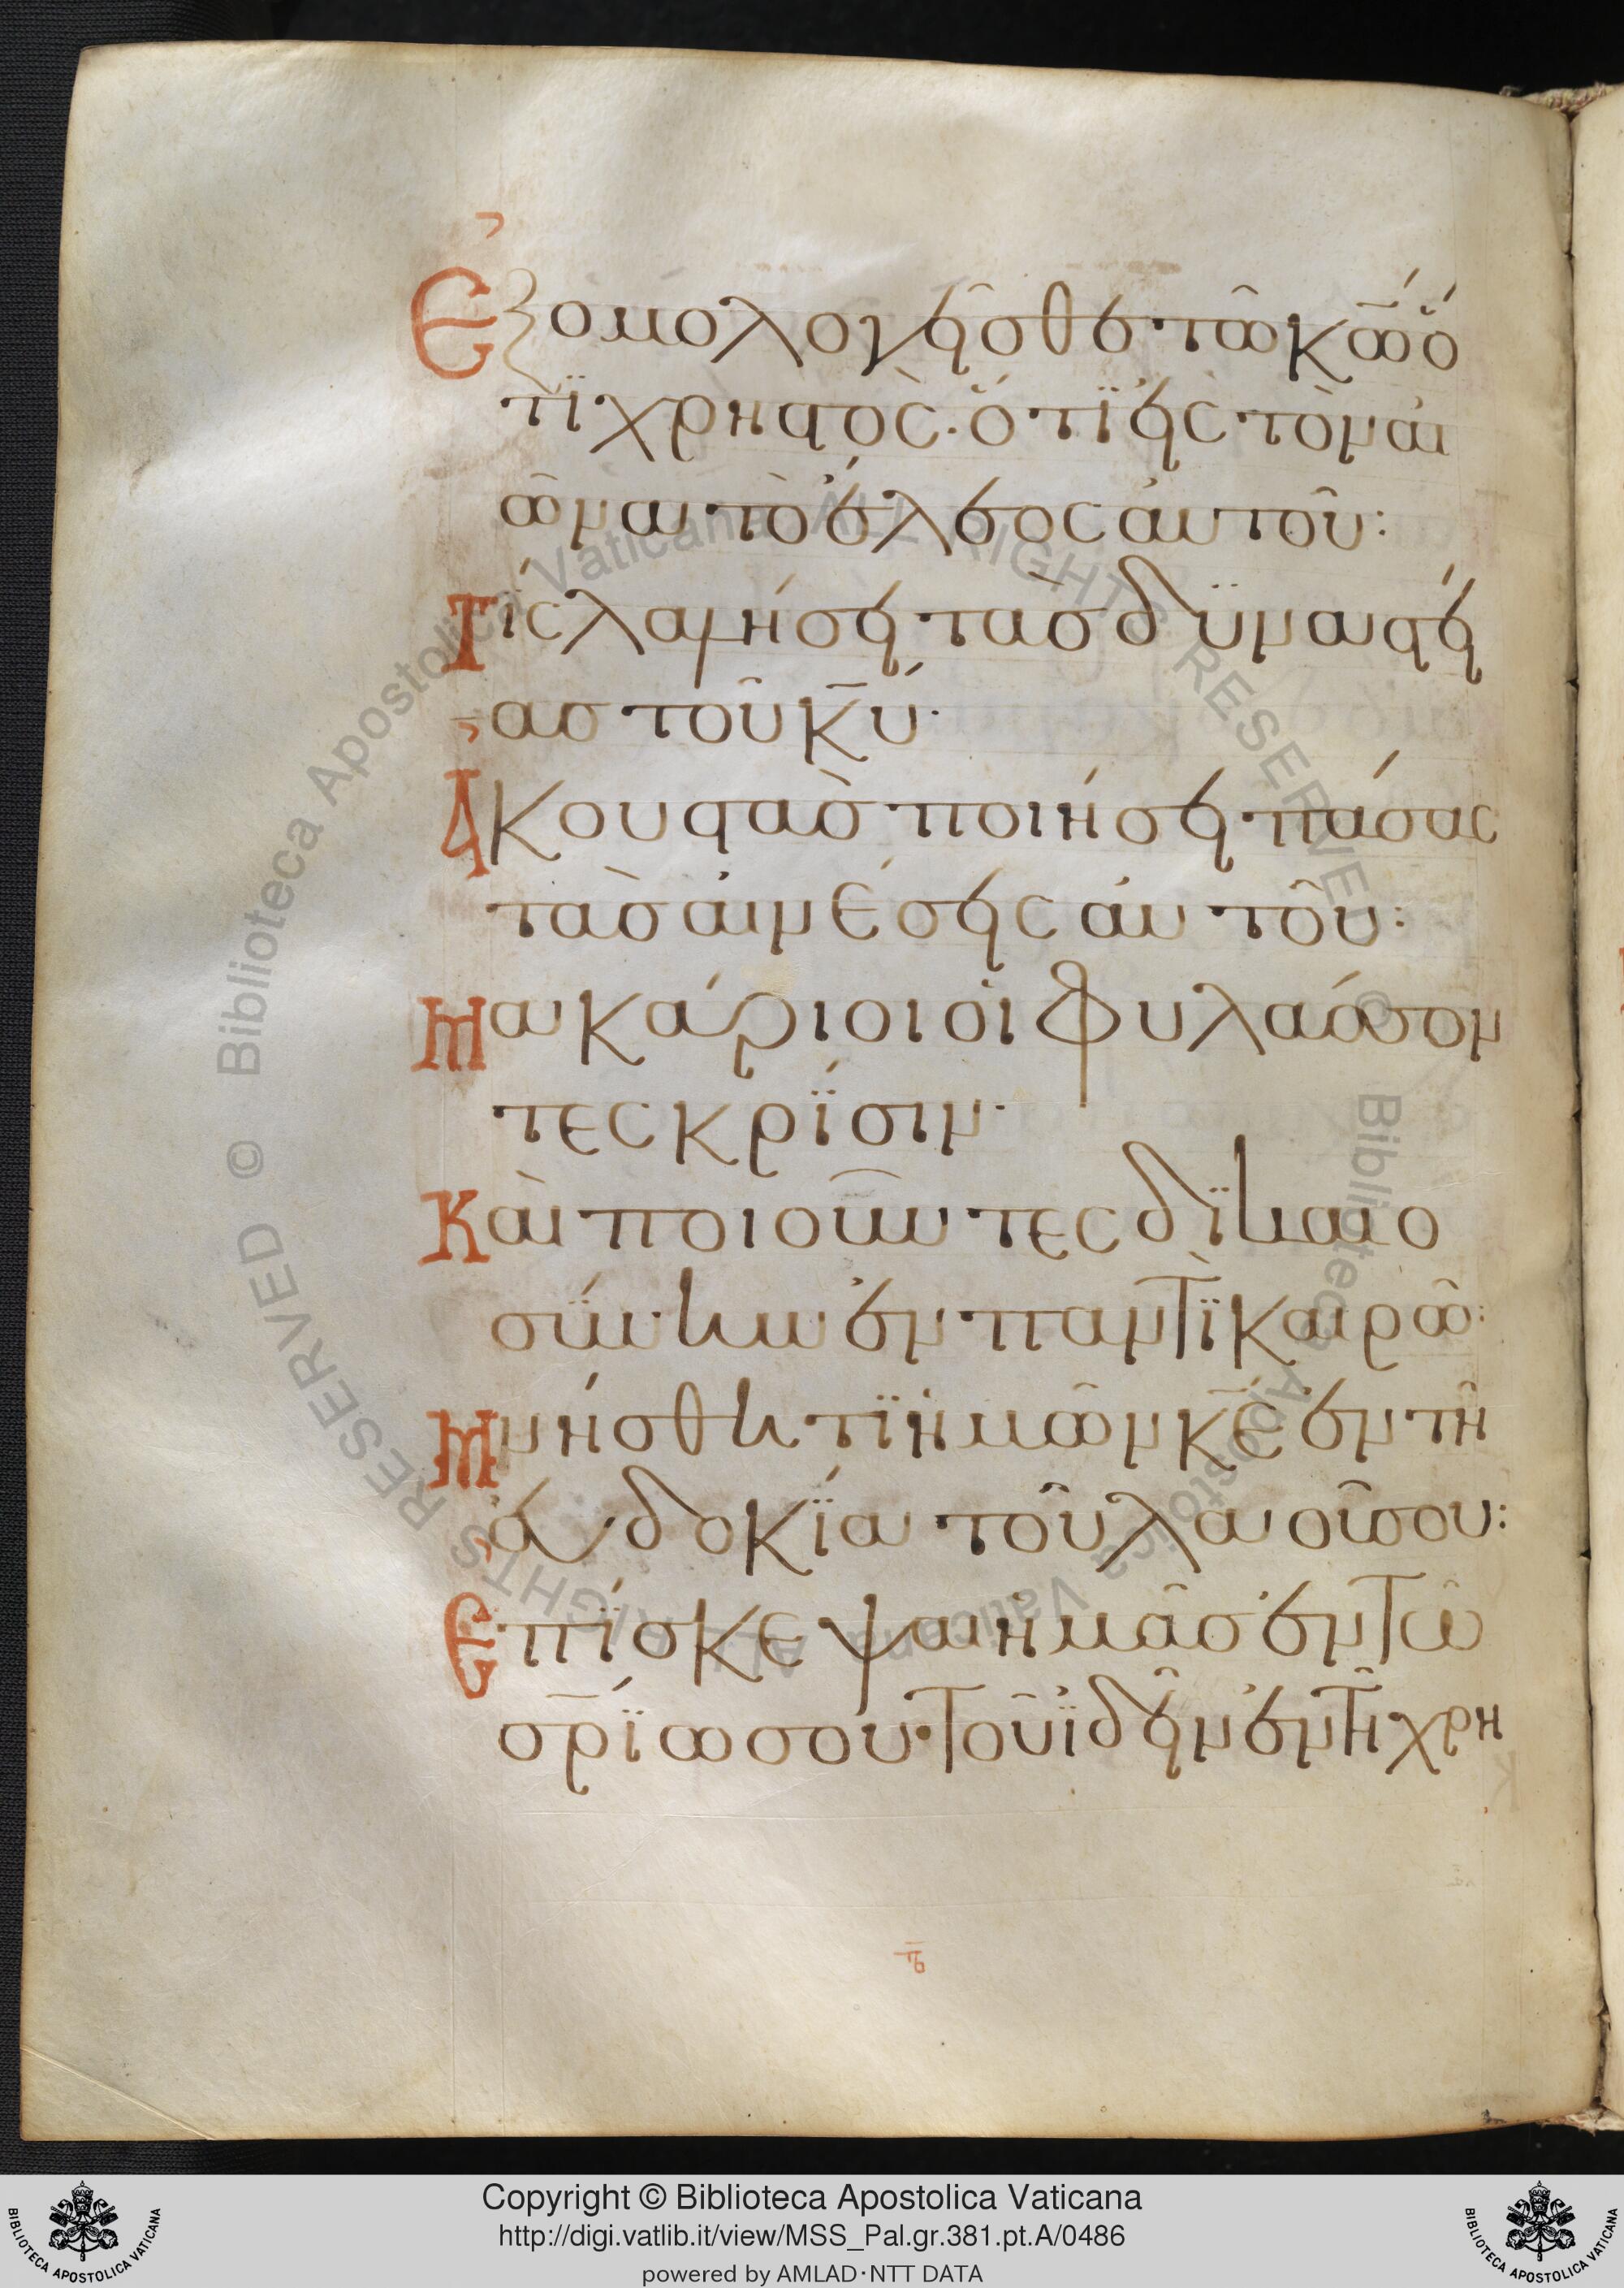 Ἐξομολογεῖσθε τῶ κ̅ω̅ ὅ
τϊ χρηστὸς· ὅτϊ εἰς τὸν αἰ
ῶνα τὸ ἔλεος αὐτοῦ:
Τίς λαλήσει τὰσ δϋναστεί
ασ τοῦ κ̅υ̅·
Ἀκουστὰσ ποιήσει πάσας
τὰσ αἰνέσεις αὐτοῦ:
Μακάριοι οἱ φυλάσσον
τες κρΐσιν·
Καὶ ποιοῦντες δϊκαιο
σύνην ἐν παντὶ καιρῶ:
Μνήσθητϊ ἡμῶν κ̅ε̅ ἐν τῆ
εὐδοκΐα τοῦ λαοῦ σου:
Ἐπΐσκεψαι ἡμᾶσ ἐν τῶ
σ̅ρ̅ΐω σου· τοῦ ἰδεῖν ἐν τῆ χρη
π̅ϛ̅
Copyright © Biblioteca Apostolica Vaticana
http://digi.vatlib.it/view/MSS_Pal.gr.381.pt.A/0486
powered by AMLAD·NTT DATA
BIBLIOTECA APOSTOLICA VATICANA
BIBLIOTECA APOSTOLICA VATICANA
© Biblioteca Apostolica Vaticana ALL RIGHTS RESERVED
© Biblioteca Apostolica Vaticana ALL RIGHTS RESERVED